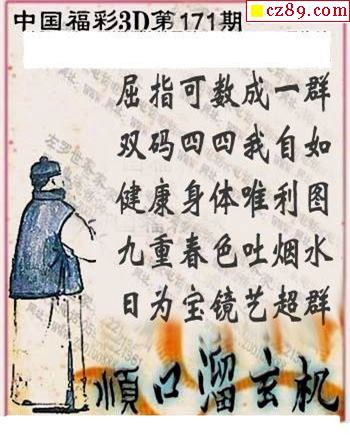 cz89.com
中国福彩3D第171期
屈指可数成一群
双码四四我自如
健康身体唯利图
九重春色吐烟水
日为宝镜艺超群
順口溜玄机